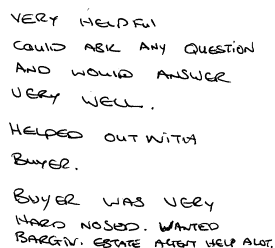 VERY HELPFUL
COULD ASK ANY QUESTION
AND WOULD ANSWER
VERY WELL.
HELPED OUT WITH
BUYER.
BUYER WAS VERY
HARD NOSED. WANTED
BARGIN. ESTATE AGENT HELP ALOT.